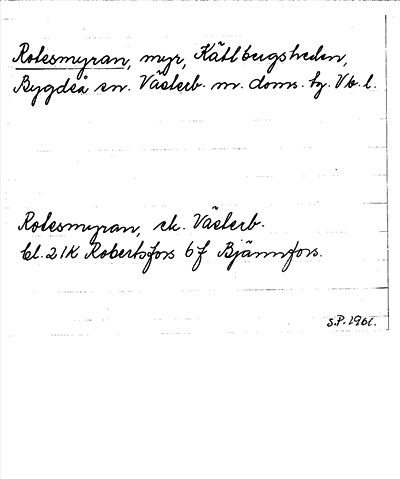 Rotesmyran, myr, Kätlbergsheden,
Bygdeå sn. Västerb. m. doms. hg. Vb. l.
Rotesmyran, ek. Västerb.
bl. 21K Robertsfors 6 f Bjännfors.
S.P. 1961.